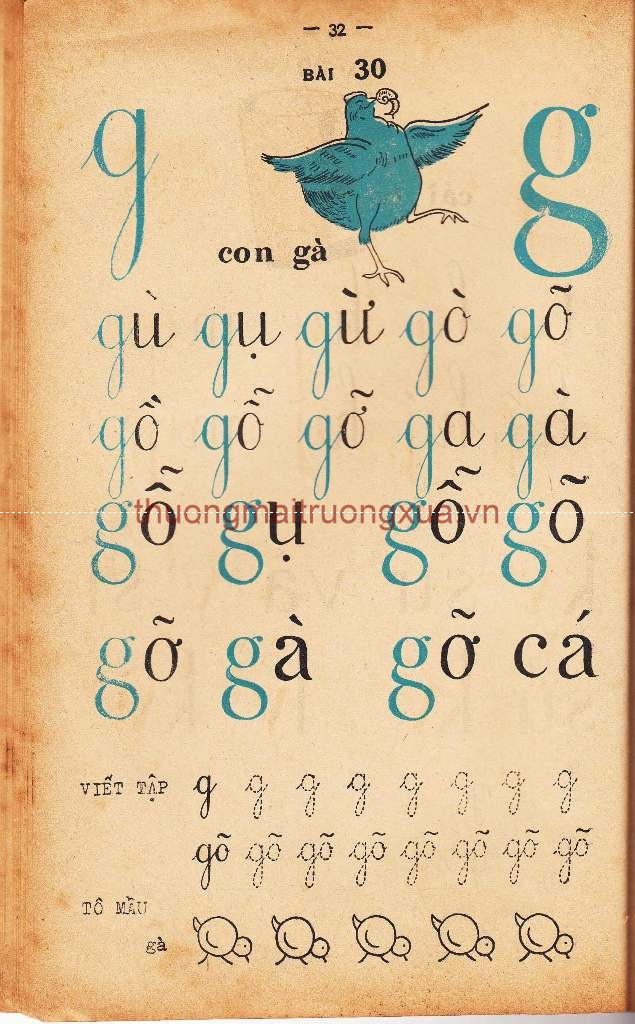 — 32 —
BÀI 30
g g
con gà
gù gụ gừ gò gõ
gồ gỗ gỡ ga gà
thuongmaitruongxua.vn
gỗ gụ gỗ gõ
gỡ gà gỡ cá
VIẾT TẬP g g g g g g g g
gõ gõ gõ gõ gõ gõ gõ gõ
TÔ MẦU
gà